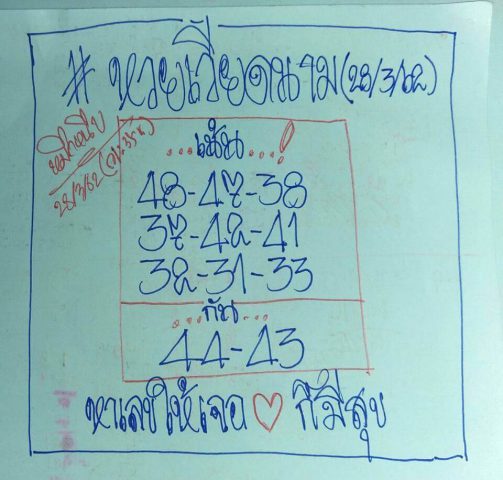 # หวยเวียดนาม (28/3/62)
28/3/62
...เน้น...!
48-47-38
37-42-41
32-31-33
...กัน...
44-43
หาเลขให้เจอ ♡ ก็มีสุข